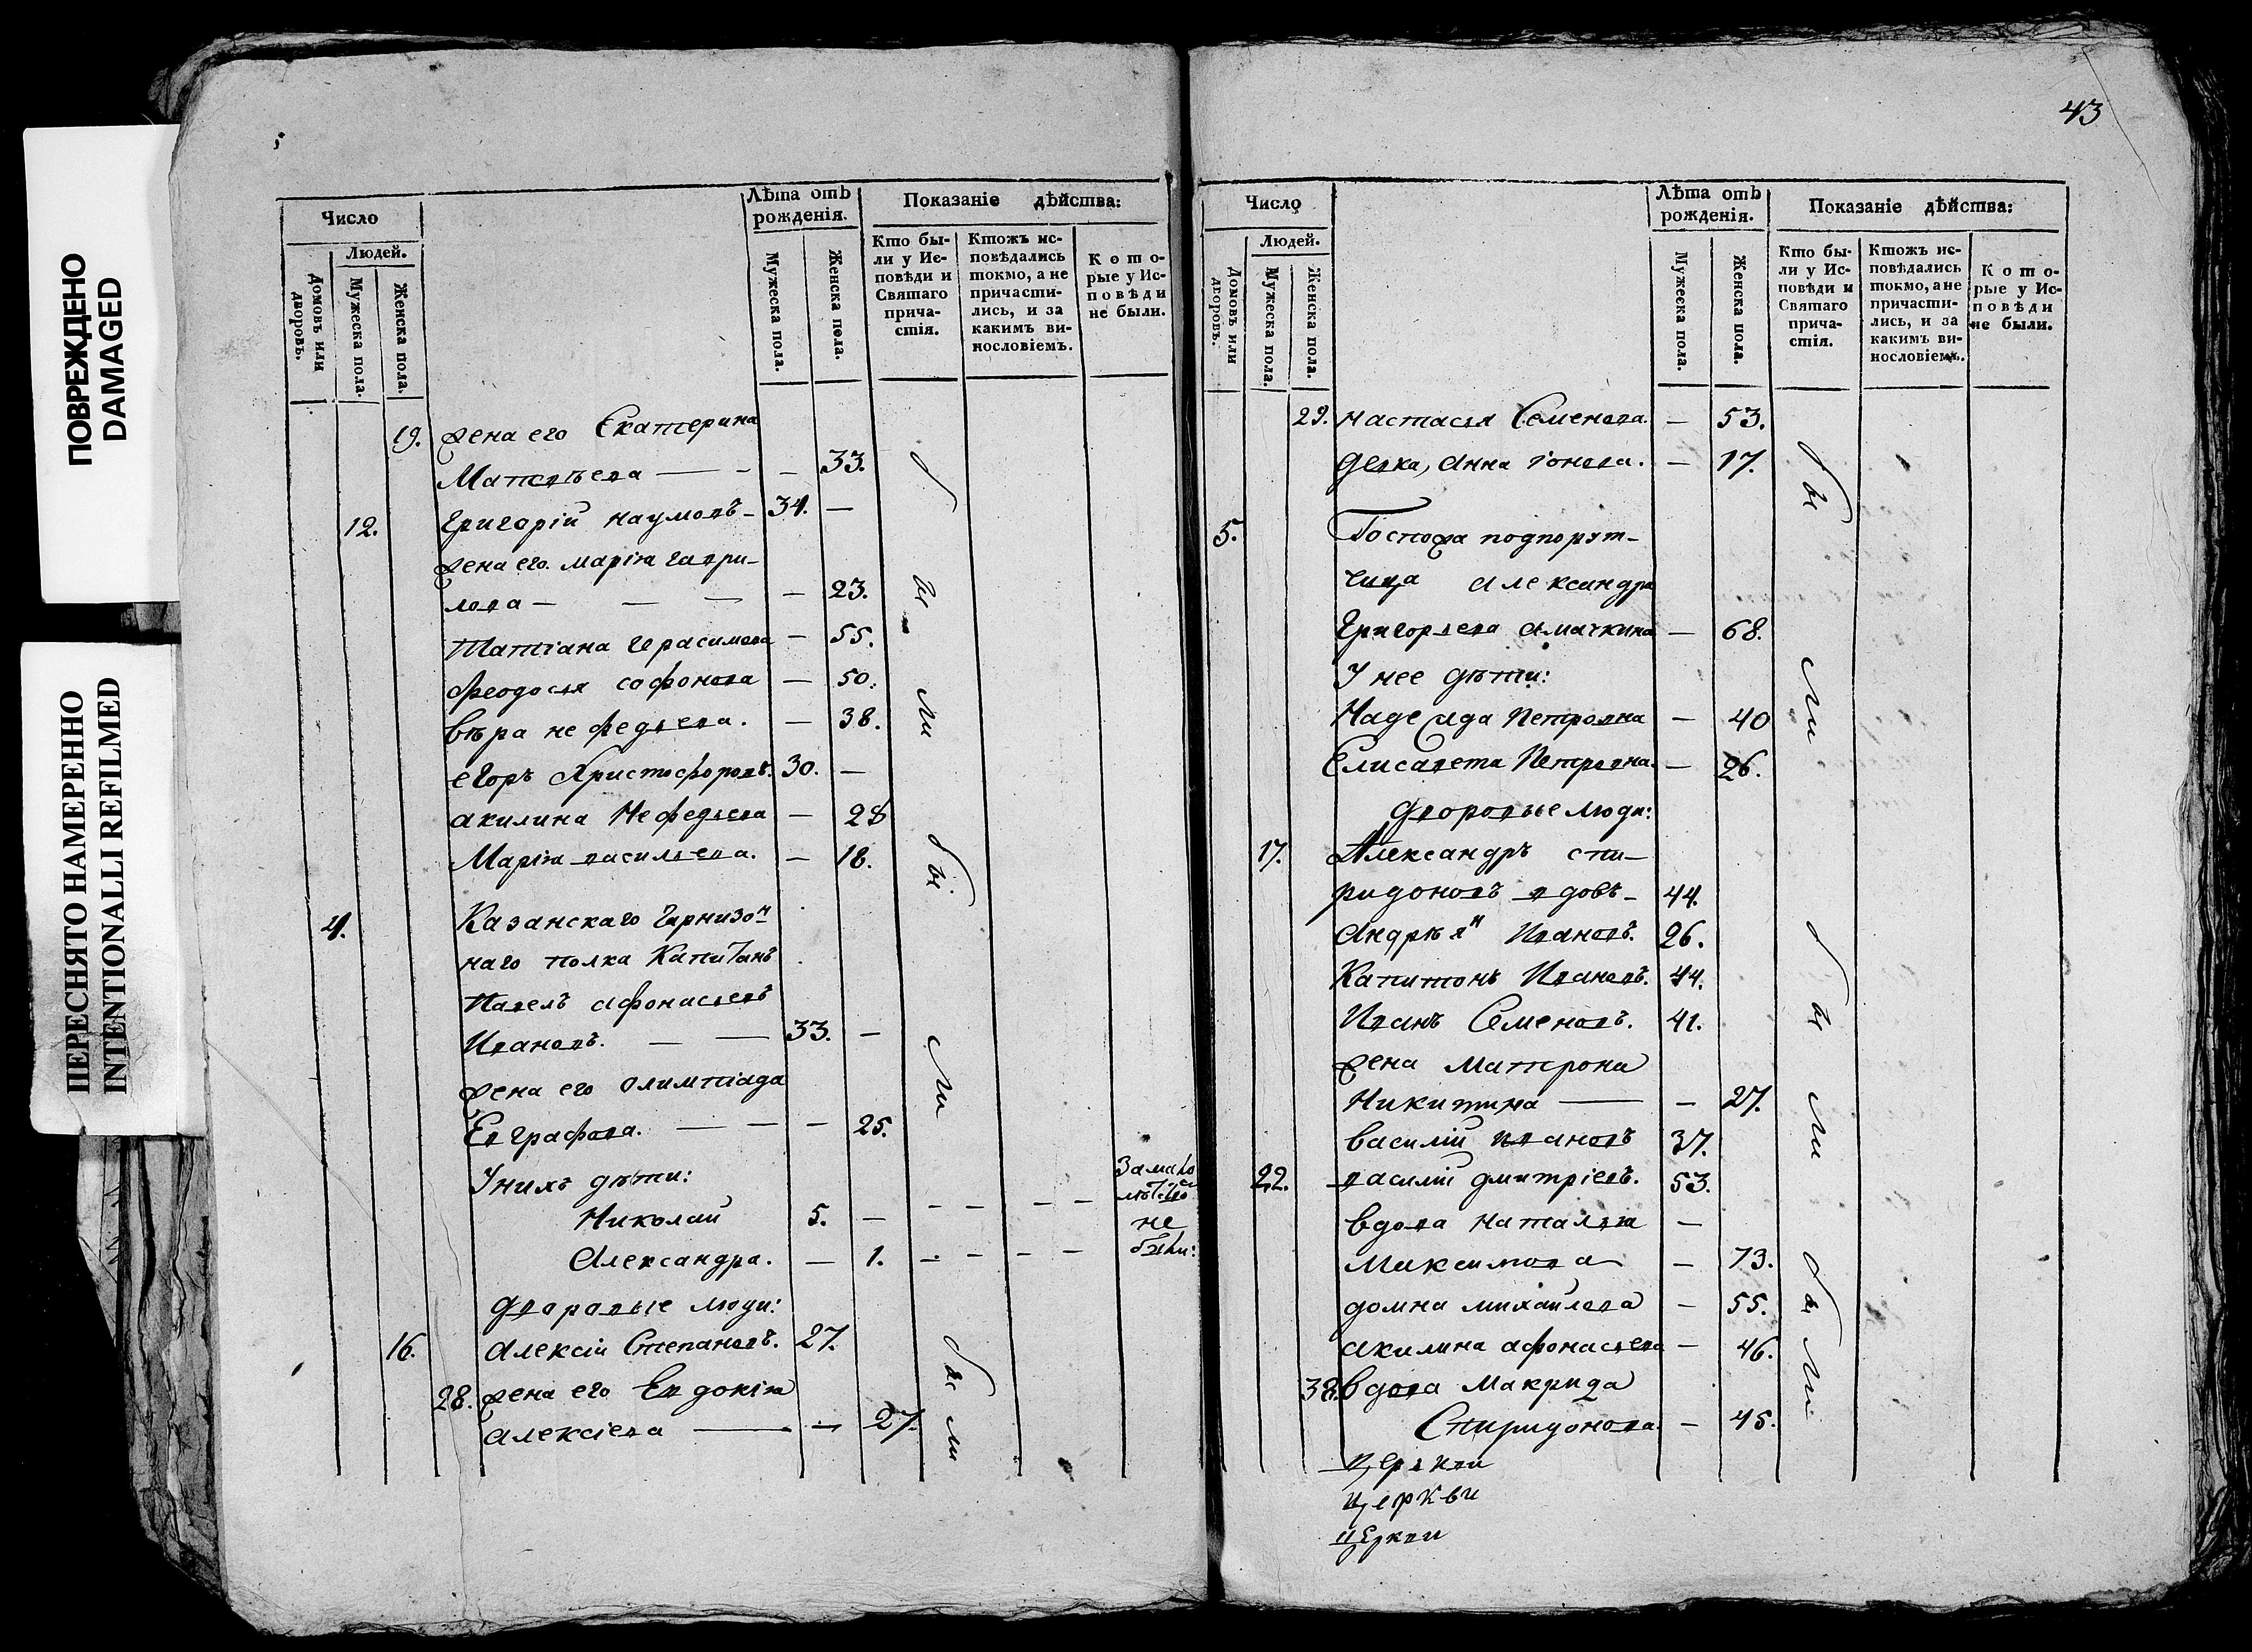 ПОВРЕЖДЕНО
DAMAGED
ПЕРЕСНЯТО НАМЕРЕННО
INTENTIONALLI REFILMED
Число
Людей.
Домовъ или дворовъ.
Мужеска пола.
Женска пола.
Лѣта отъ рожденія.
Мужеска пола.
Женска пола.
Показаніе дѣйства:
Кто были у Исповѣди и Святаго причастія.
Ктожъ исповѣдались токмо, а не причастились, и за какимъ винословіемъ.
Которые у Исповѣди не были.
19. жена его Екатерина
Матвѣева — - - 33.
12. Григорій Наумовъ - 34. —
жена его Марія Гаври-
лова — — — - 23.
Татіана Герасимова - 55.
Феодосья Софонова - 50.
Вѣра Нефедьева. - 38.
Егоръ Христофоровъ. 30. —
Акилина Нефедьева - 28
Марія Васильева. - 18.
4. Казанскаго Гарнизон
наго полка Капитанъ
Павелъ Афонасьевъ
Ивановъ. — — 33. -
жена его Олимпіада
Евграфова. — — - 25.
У нихъ дѣти:
Николай 5. — - - - -
Александра. — 1. - - - -
За мало
лѣтством
не
были:
Дворовые люди:
16. Алексій Степановъ. 27.
28. жена его Евдокія
Алексіева — - 27.
бы
ли
бы
ли
бы
ли
43
Число
Людей.
Домовъ или дворовъ.
Мужеска пола.
Женска пола.
Лѣта отъ рожденія.
Мужеска пола.
Женска пола.
Показаніе дѣйства:
Кто были у Исповѣди и Святаго причастія.
Ктожъ исповѣдались токмо, а не причастились, и за какимъ винословіемъ.
Которые у Исповѣди не были.
29. Настасья Семенова. - 53.
Девка, Анна Іонова. - 17.
5. Госпожа подпорут-
чица Александра
Григорьева Амачкина - 68.
У нее дѣти:
Надежда Петровна - 40
Елисавета Петровна. - 26.
Дворовые люди:
17. Александръ Спи-
ридоновъ вдовъ - 44.
Андреян Ивановъ. 26.
Капитонъ Ивановъ. 44.
Иванъ Семеновъ. 41.
жена Матрона
Никитина — - 27.
Василій Ивановъ 37.
22. Василій Дмитріевъ. 53.
Вдова Наталья -
Максимова - 73.
Домна Михаилова - 55.
Акилина Афонасьева - 46.
38. Вдова Макрида
Спиридонова. - 45.
бы
ли
бы
ли
бы
ли
Церкви
Церкви
Церкви